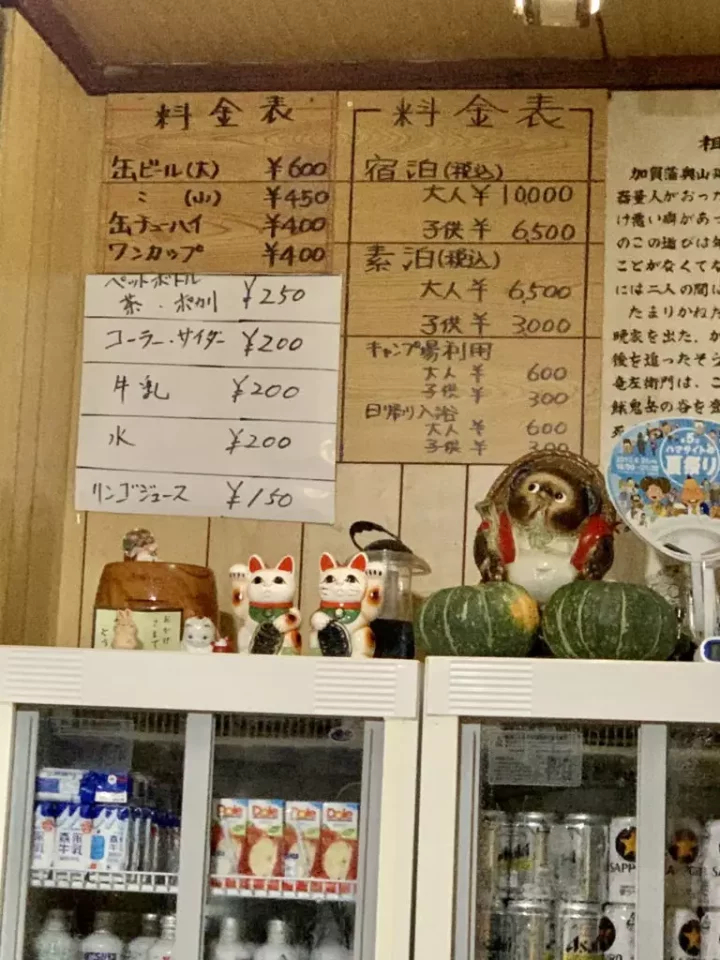 料金表
缶ビール(大) ¥600
〃 (小) ¥450
缶チューハイ ¥400
ワンカップ ¥400
ペットボトル
茶・ポカリ ¥250
コーラー・サイダー ¥200
牛乳 ¥200
水 ¥200
リンゴジュース ¥150
料金表
宿泊(税込)
大人¥10,000
子供¥6,500
素泊(税込)
大人¥6,500
子供¥3,000
キャンプ場利用
大人¥600
子供¥300
日帰り入浴
大人¥600
子供¥300
加賀藩奥山
器量人がおった
け悪い癖があっ
のこの遊びは
ことがなくてな
には二人の間に
たまりかねた
晩家を出た。か
後を追ったそう
竜左衛門は、こ
餓鬼岳の谷を
第5回
夏祭り
おかげ
さまで
牛乳
Dole
Dole
Dole
Dole
Asahi
SAPPORO